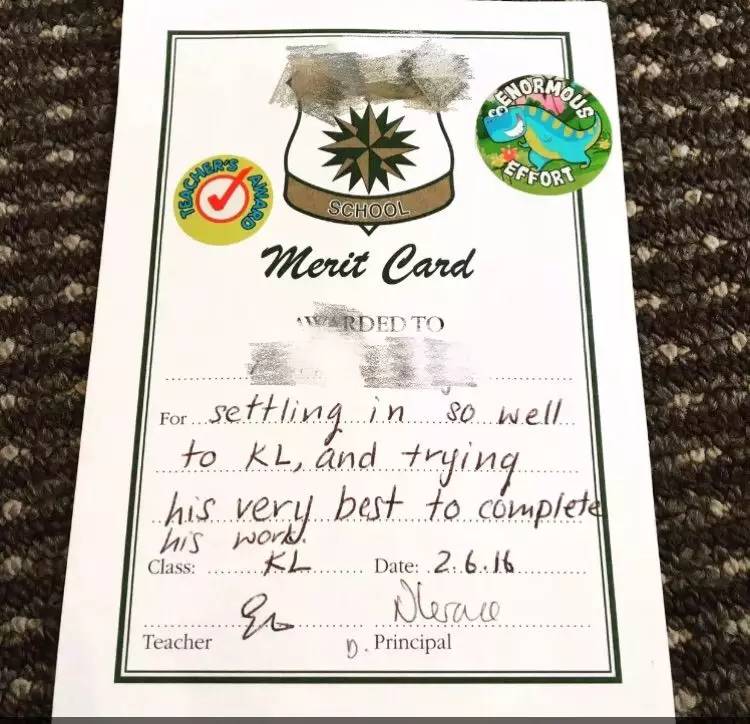 ENORMOUS
EFFORT
TEACHER'S AWARD
SCHOOL
Merit Card
AWARDED TO
For settling in so well
to KL, and trying
his very best to complete
his work.
Class: KL Date: 2.6.16
Teacher D. Principal